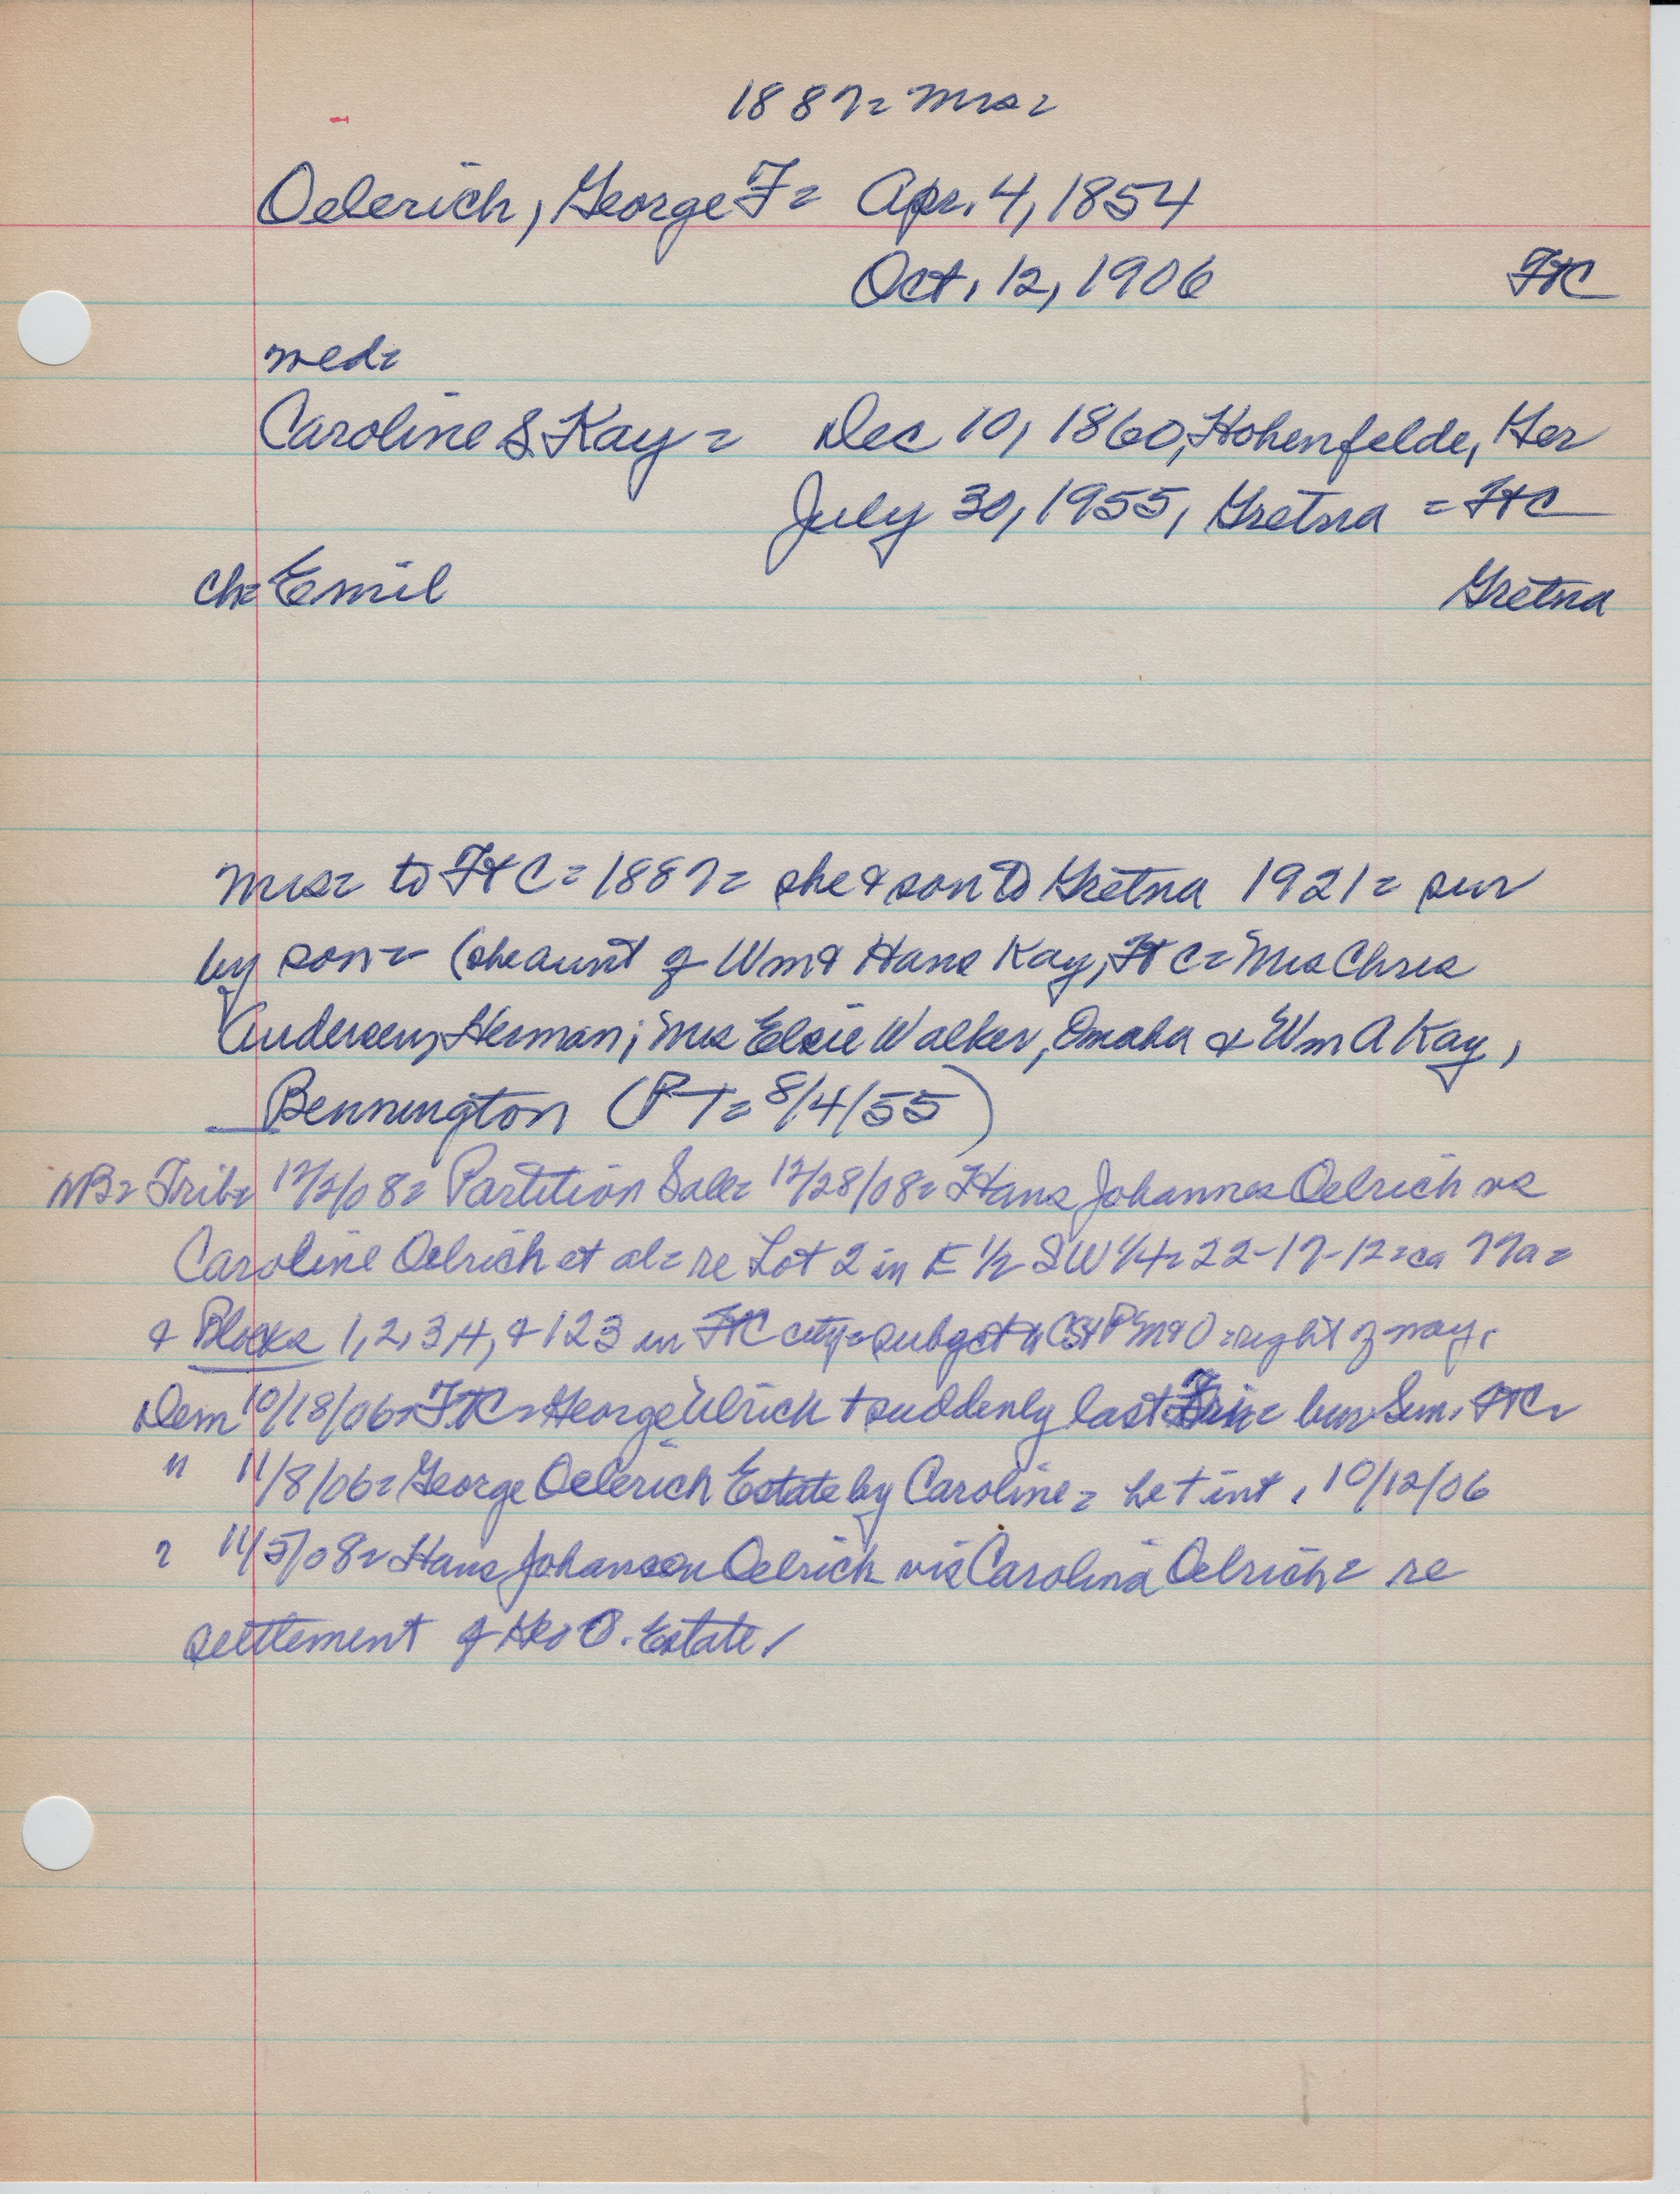 1887= Mrs=
Oelerich, George F= Apr. 4, 1854
Oct. 12, 1906 FtC
wed=
Caroline S. Kay = Dec 10, 1860, Hohenfelde, Ger
July 30, 1955, Gretna = FtC
ch= Emil Gretna
Mrs= to FtC = 1887= she & son to Gretna 1921= sur
by son= (she aunt of Wm & Hans Kay, FtC= Mrs Chris
Andersen, Herman; Mrs Elsie Walker, Omaha & Wm A Kay,
Bennington (PT= 8/4/55)
NB= Trib= 12/2/08= Partition Sale= 12/28/08= Hans Johannes Oelrich vs
Caroline Oelrich et al= re Lot 2 in E 1/2 SW 1/4= 22-17-12=ca 77a=
& Blocks 1, 2, 3, 4, & 123 in FtC city= subject to CStPM&O =right of way.
Dem 10/18/06= FtC= George Ulrich † suddenly last Fri= bur Sun. FtC=
" 11/8/06= George Oelerich Estate by Caroline= he † int. 10/12/06
" 11/5/08= Hans Johansen Oelrich vs Carolina Oelrich= re
settlement of Geo O. Estate.